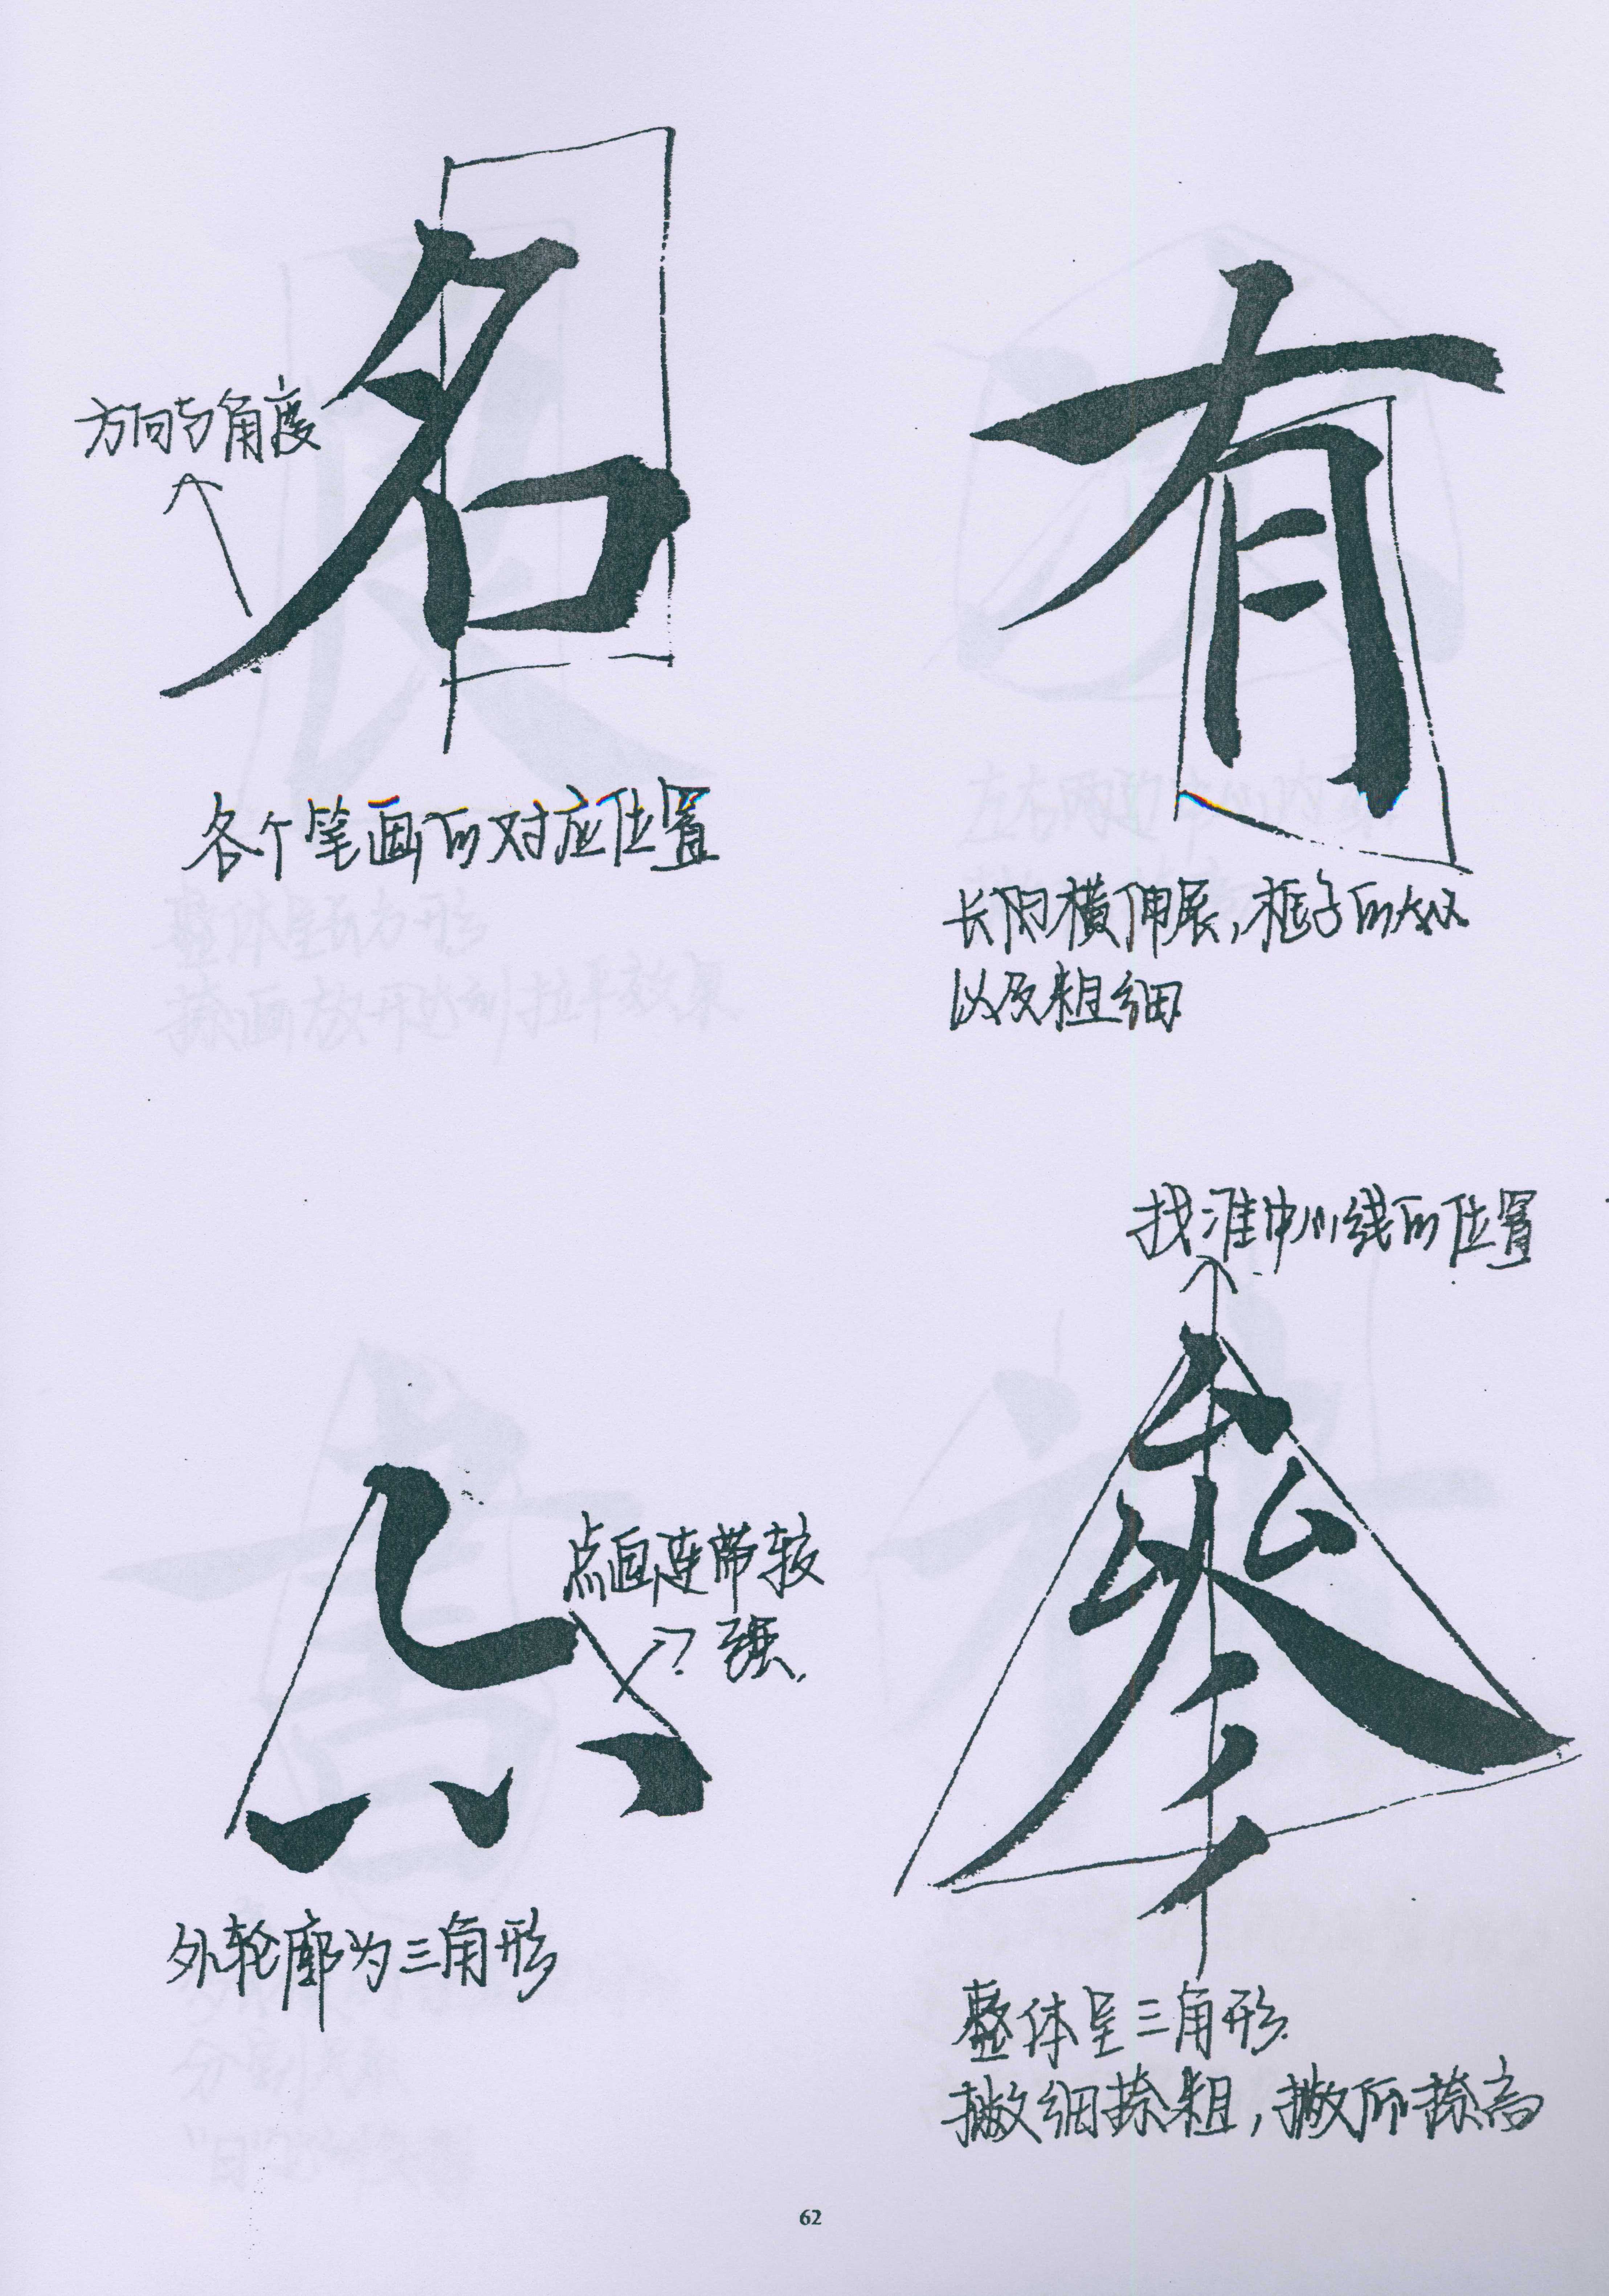 名
方向与角度
各个笔画的对应位置
有
横伸展，框子的大小
以及粗细
点画连带较
强.
外轮廓为三角形
找准中心线的位置
參
整体呈三角形.
撇细捺粗，撇低捺高
62